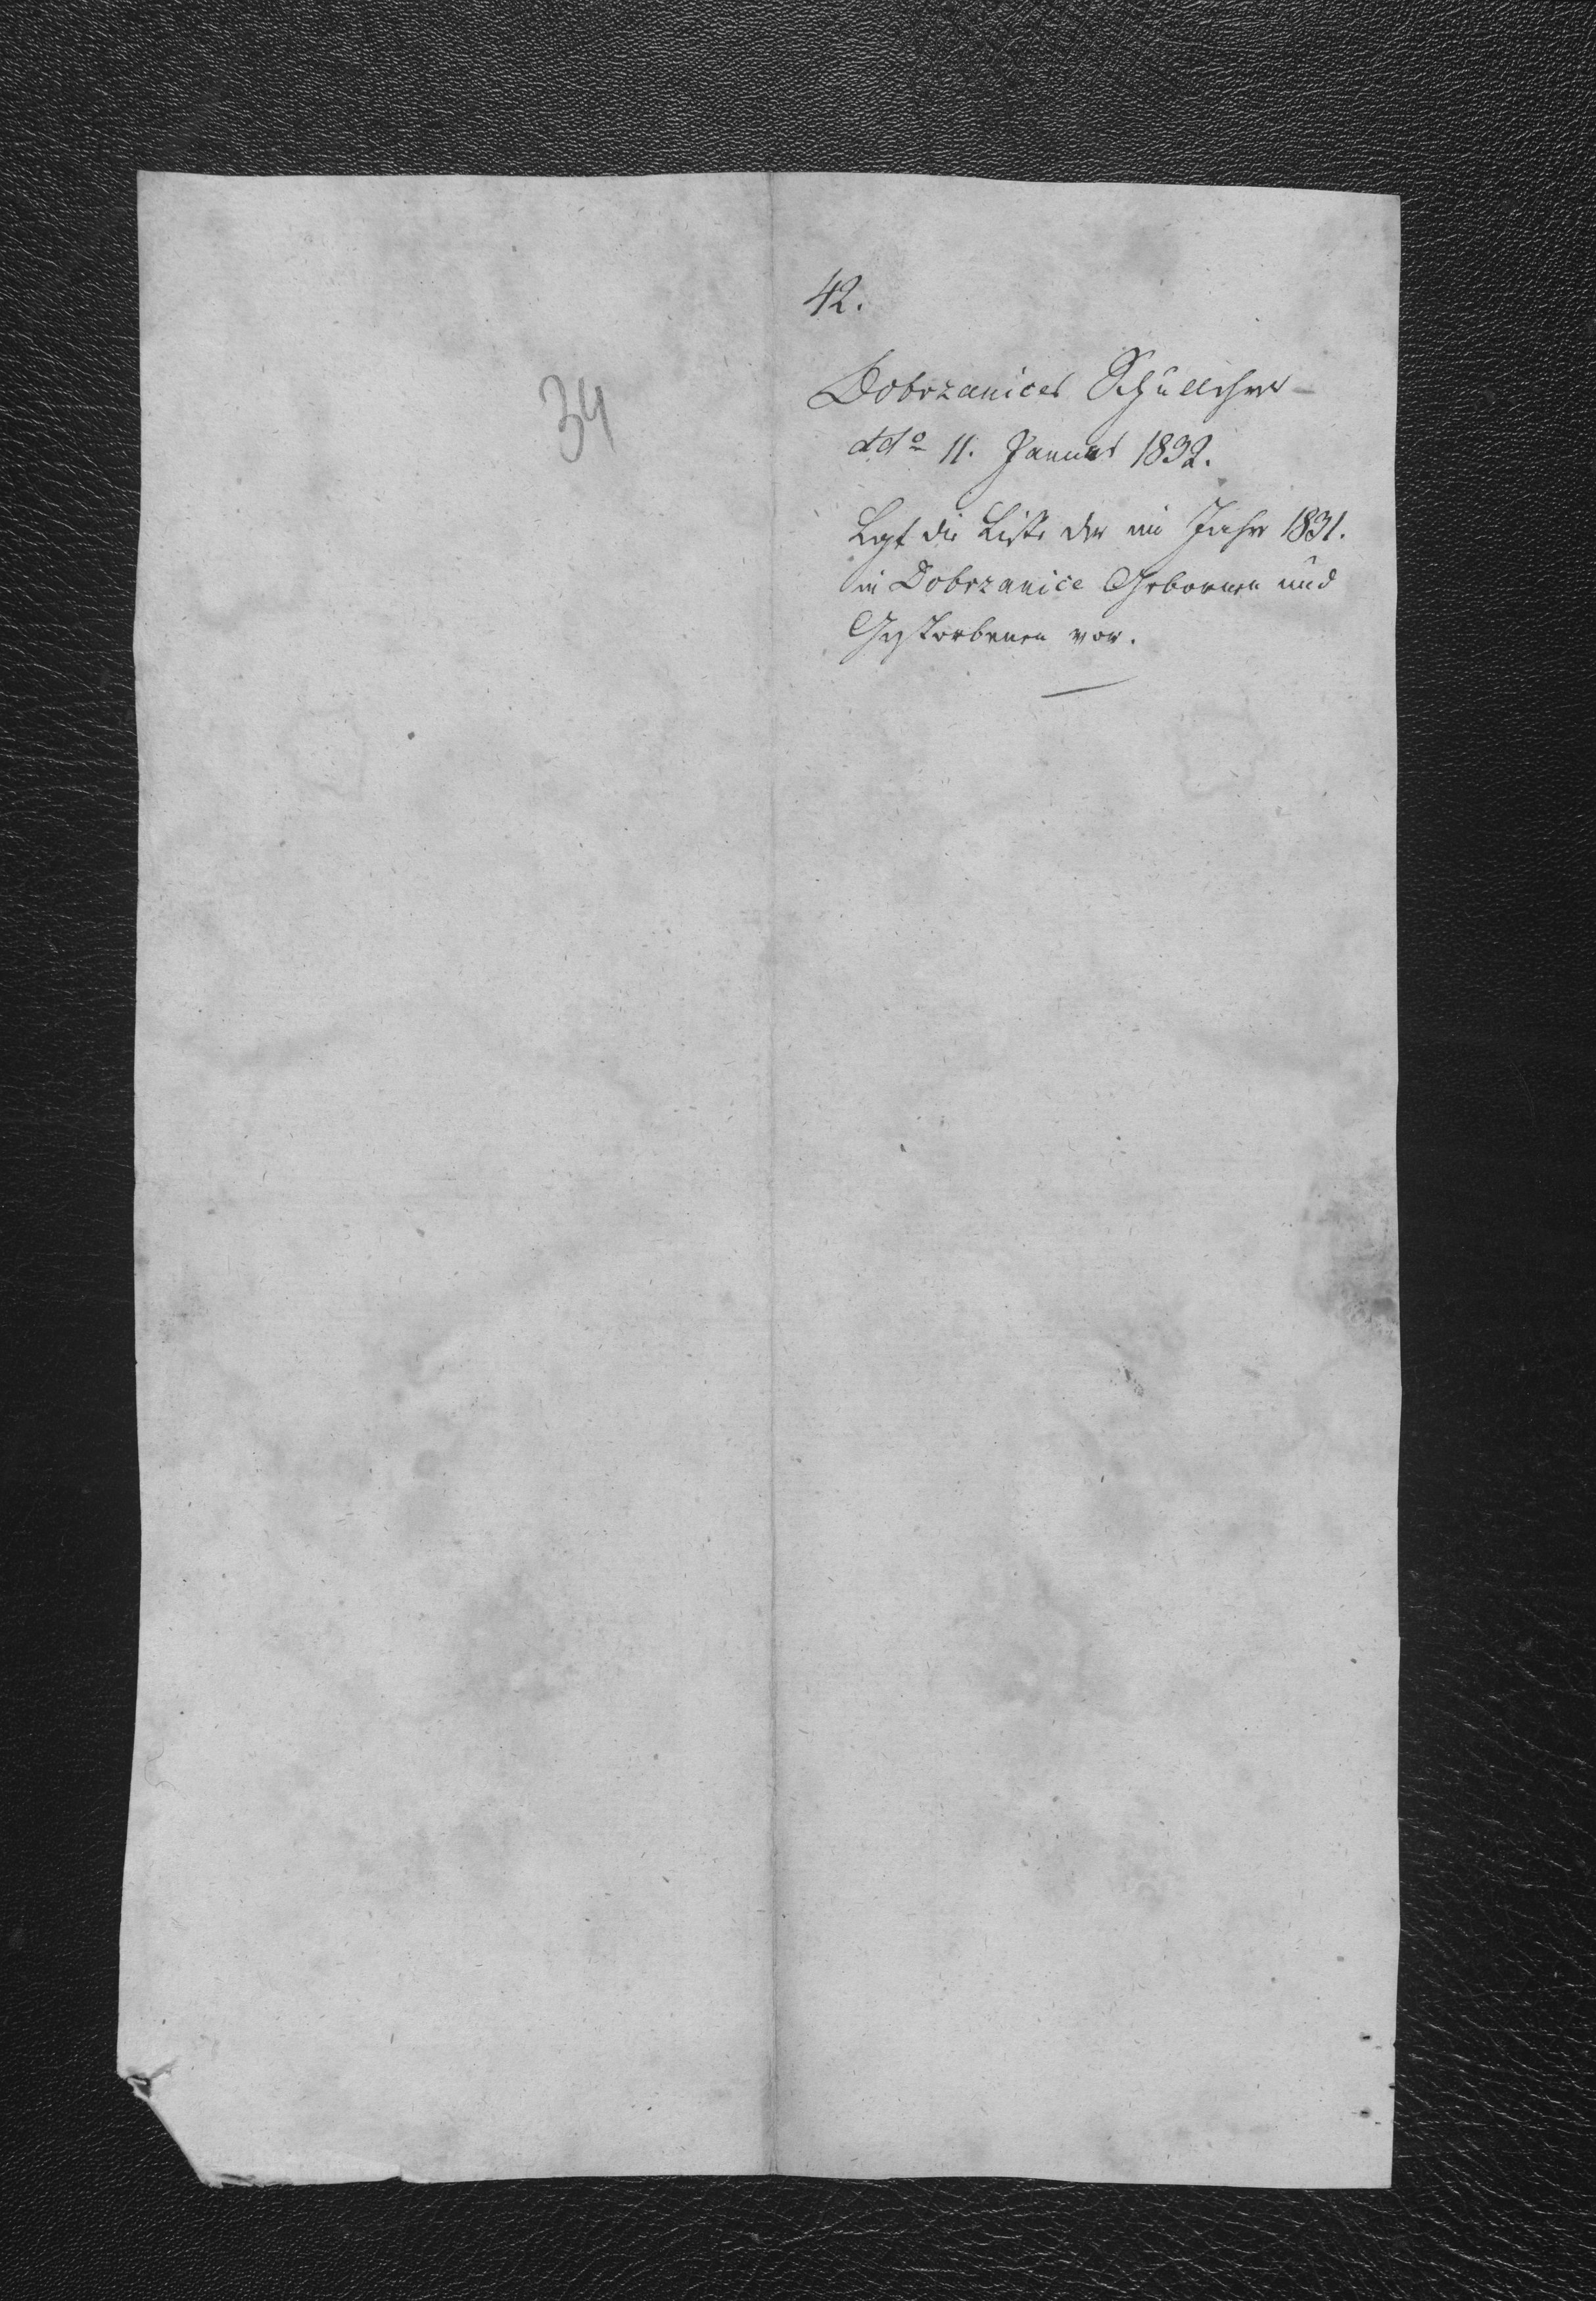 34
42.
Dobrzanicer Schullehrer
ddo 11. Januar 1832.
Legt die Liste der im Jahr 1831.
in Dobrzanice Gebornen und
Gestorbenen vor.